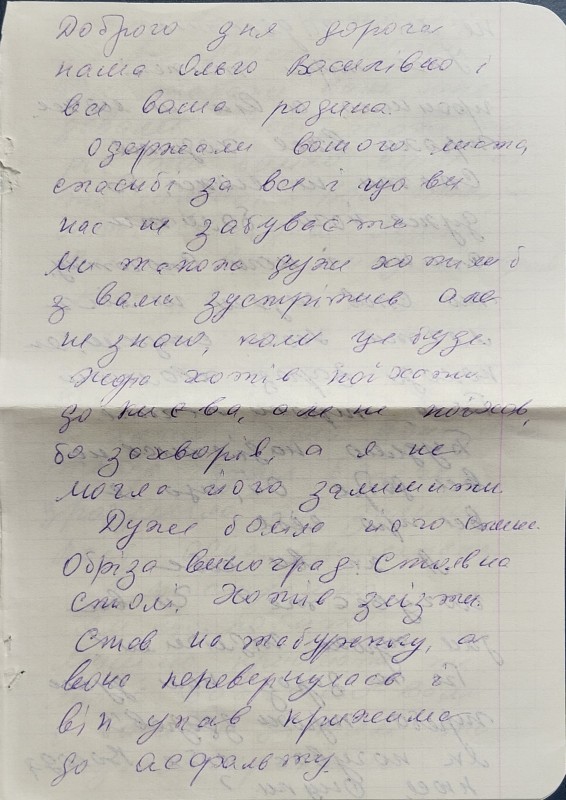 Доброго дня дорога
наша Ольго Василівно і
вся ваша родина.
Одержали вашого листа,
спасибі за все і що ви
нас не забуваєте
Ми також дуже хотіли б
з вами зустрітись але
не знаю, коли це буде.
Федя хотів поїхати
до Києва, але не поїхав,
бо захворів, а я не
могла його залишити.
Дуже боліла нога спина.
Обрізав виноград. Стояв на
столі. Хотів злізти.
Став на табуретку, а
вона перевернулась і
він упав крижима
до асфальту.